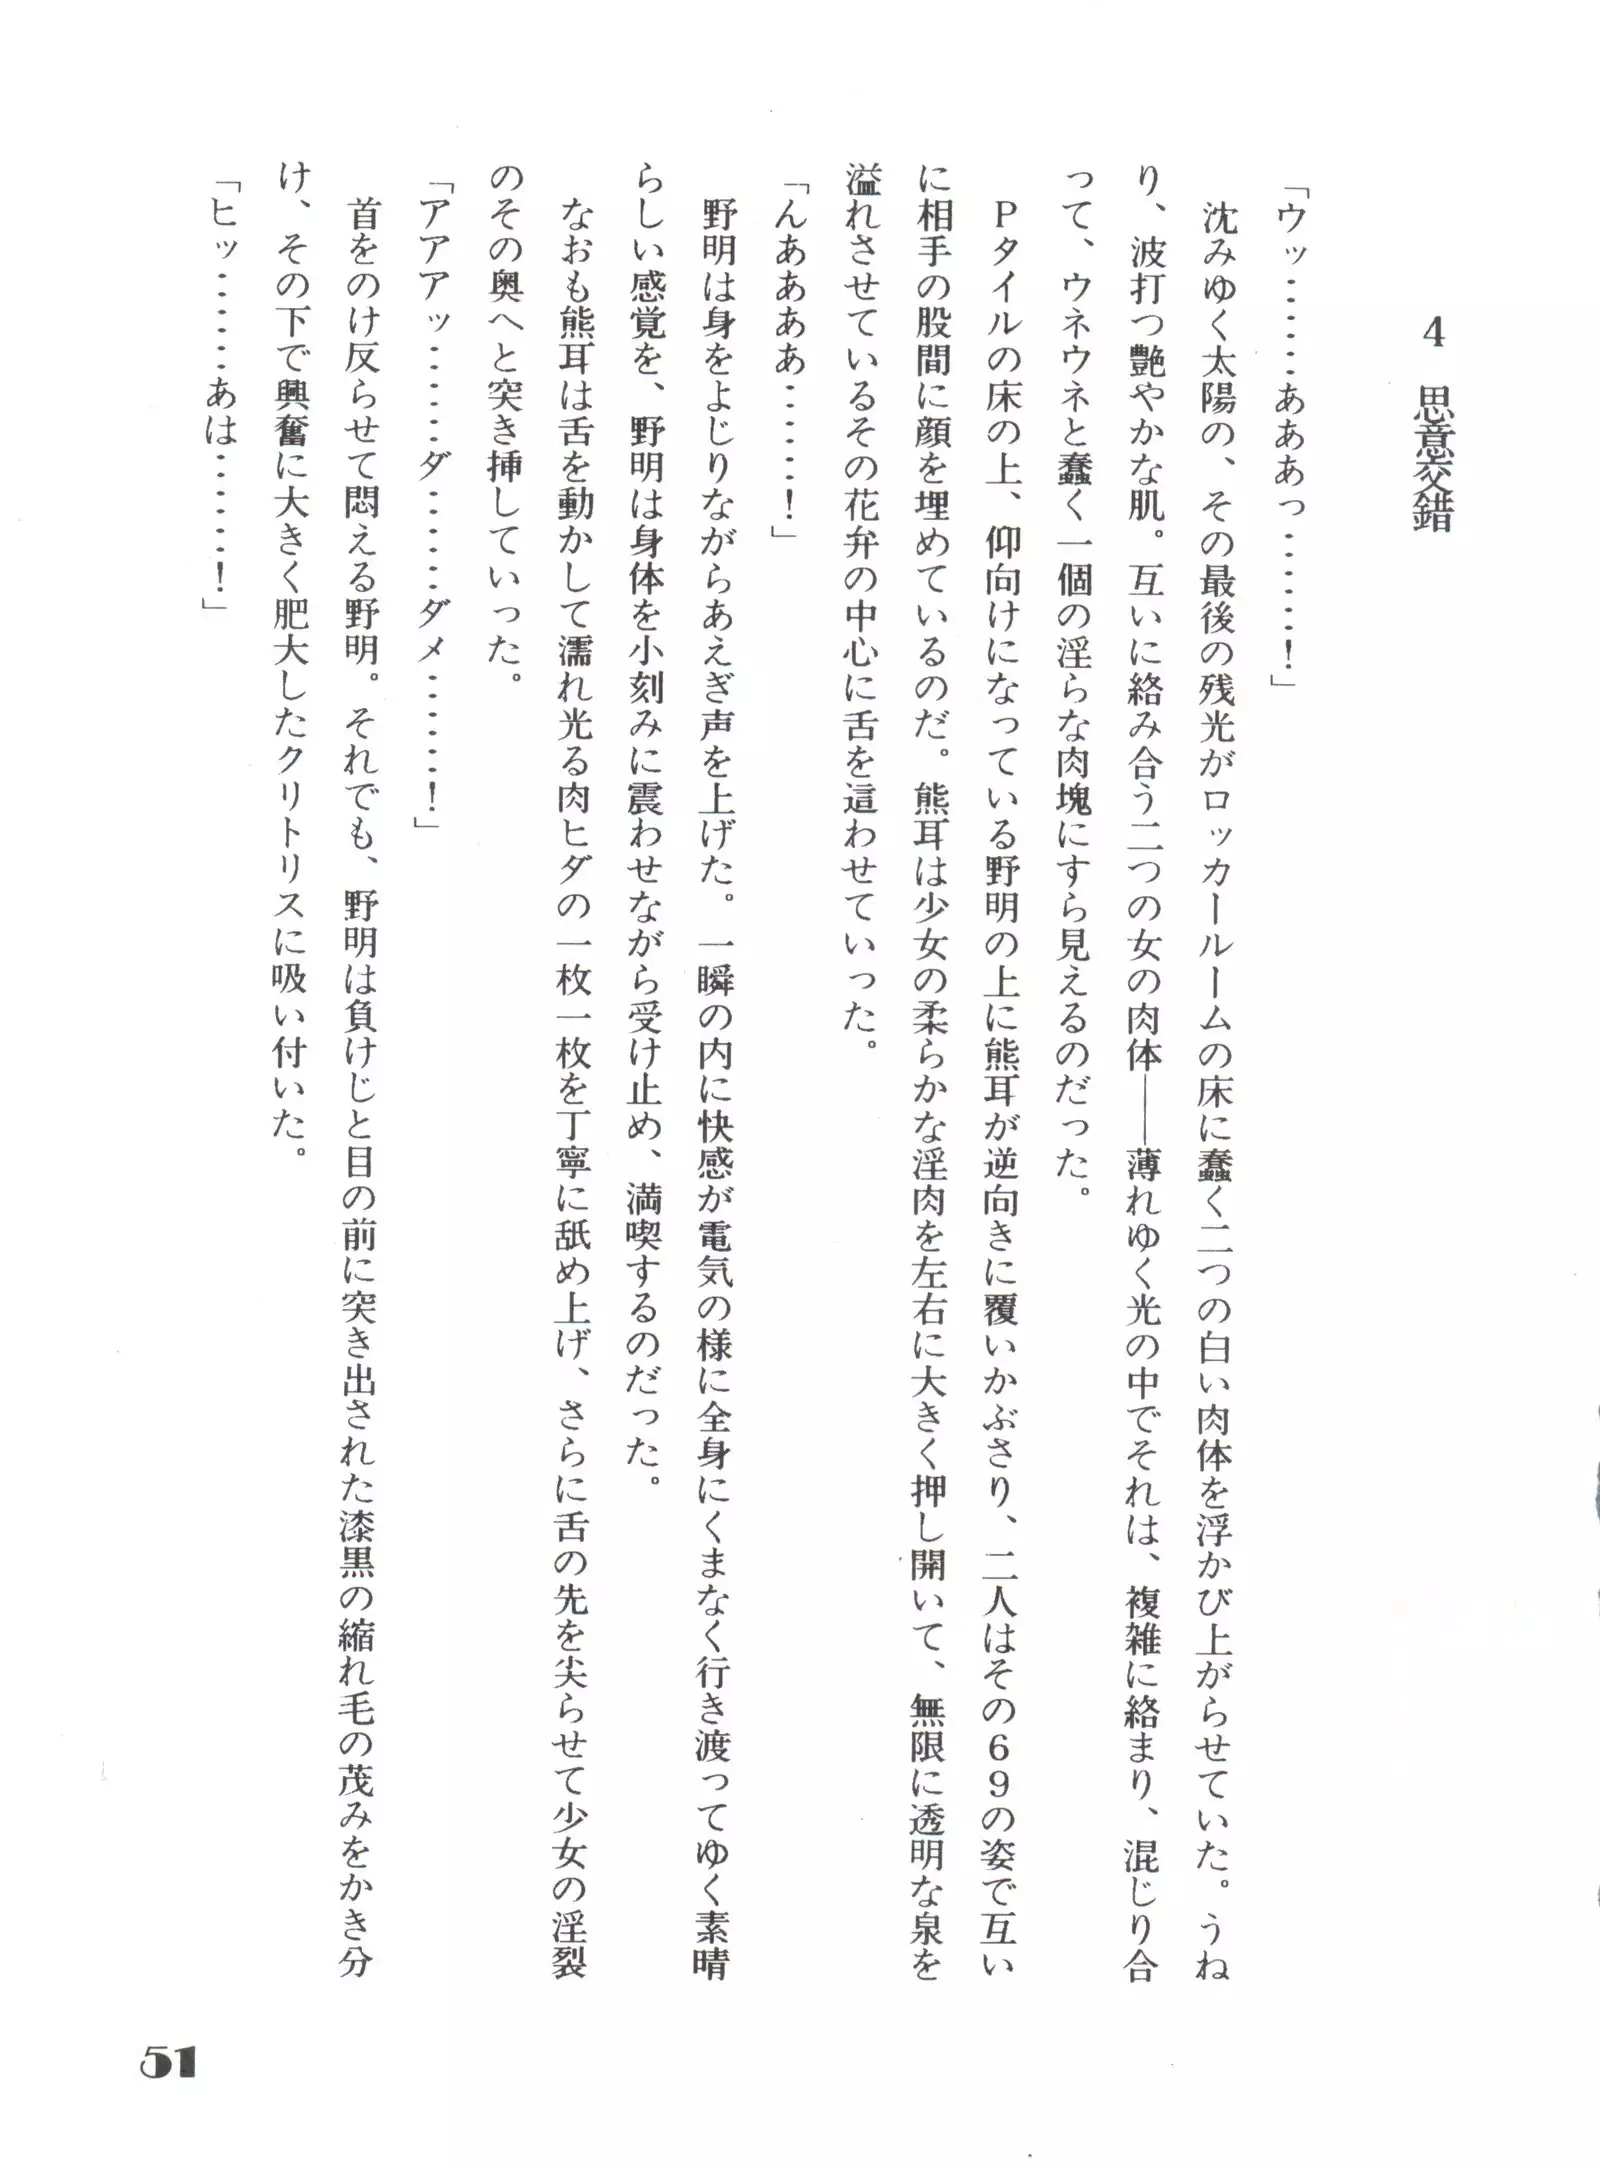 4 思意交錯
「ウッ………ああぁっ………！」
沈みゆく太陽の、その最後の残光がロッカールームの床に蠢く二つの白い肉体を浮かび上がらせていた。うね
り、波打つ艶やかな肌。互いに絡み合う二つの女の肉体――薄れゆく光の中でそれは、複雑に絡まり、混じり合
って、ウネウネと蠢く一個の淫らな肉塊にすら見えるのだった。
Pタイルの床の上、仰向けになっている野明の上に熊耳が逆向きに覆いかぶさり、二人はその69の姿で互い
に相手の股間に顔を埋めているのだ。熊耳は少女の柔らかな淫肉を左右に大きく押し開いて、無限に透明な泉を
溢れさせているその花弁の中心に舌を這わせていった。
「んあああぁ………！」
野明は身をよじりながらあえぎ声を上げた。一瞬の内に快感が電気の様に全身にくまなく行き渡ってゆく素晴
らしい感覚を、野明は身体を小刻みに震わせながら受け止め、満喫するのだった。
なおも熊耳は舌を動かして濡れ光る肉ヒダの一枚一枚を丁寧に舐め上げ、さらに舌の先を尖らせて少女の淫裂
のその奥へと突き挿していった。
「アアアッ………ダ………ダメ………！」
首をのけ反らせて悶える野明。それでも、野明は負けじと目の前に突き出された漆黒の縮れ毛の茂みをかき分
け、その下で興奮に大きく肥大したクリトリスに吸い付いた。
「ヒッ………あは………！」
51